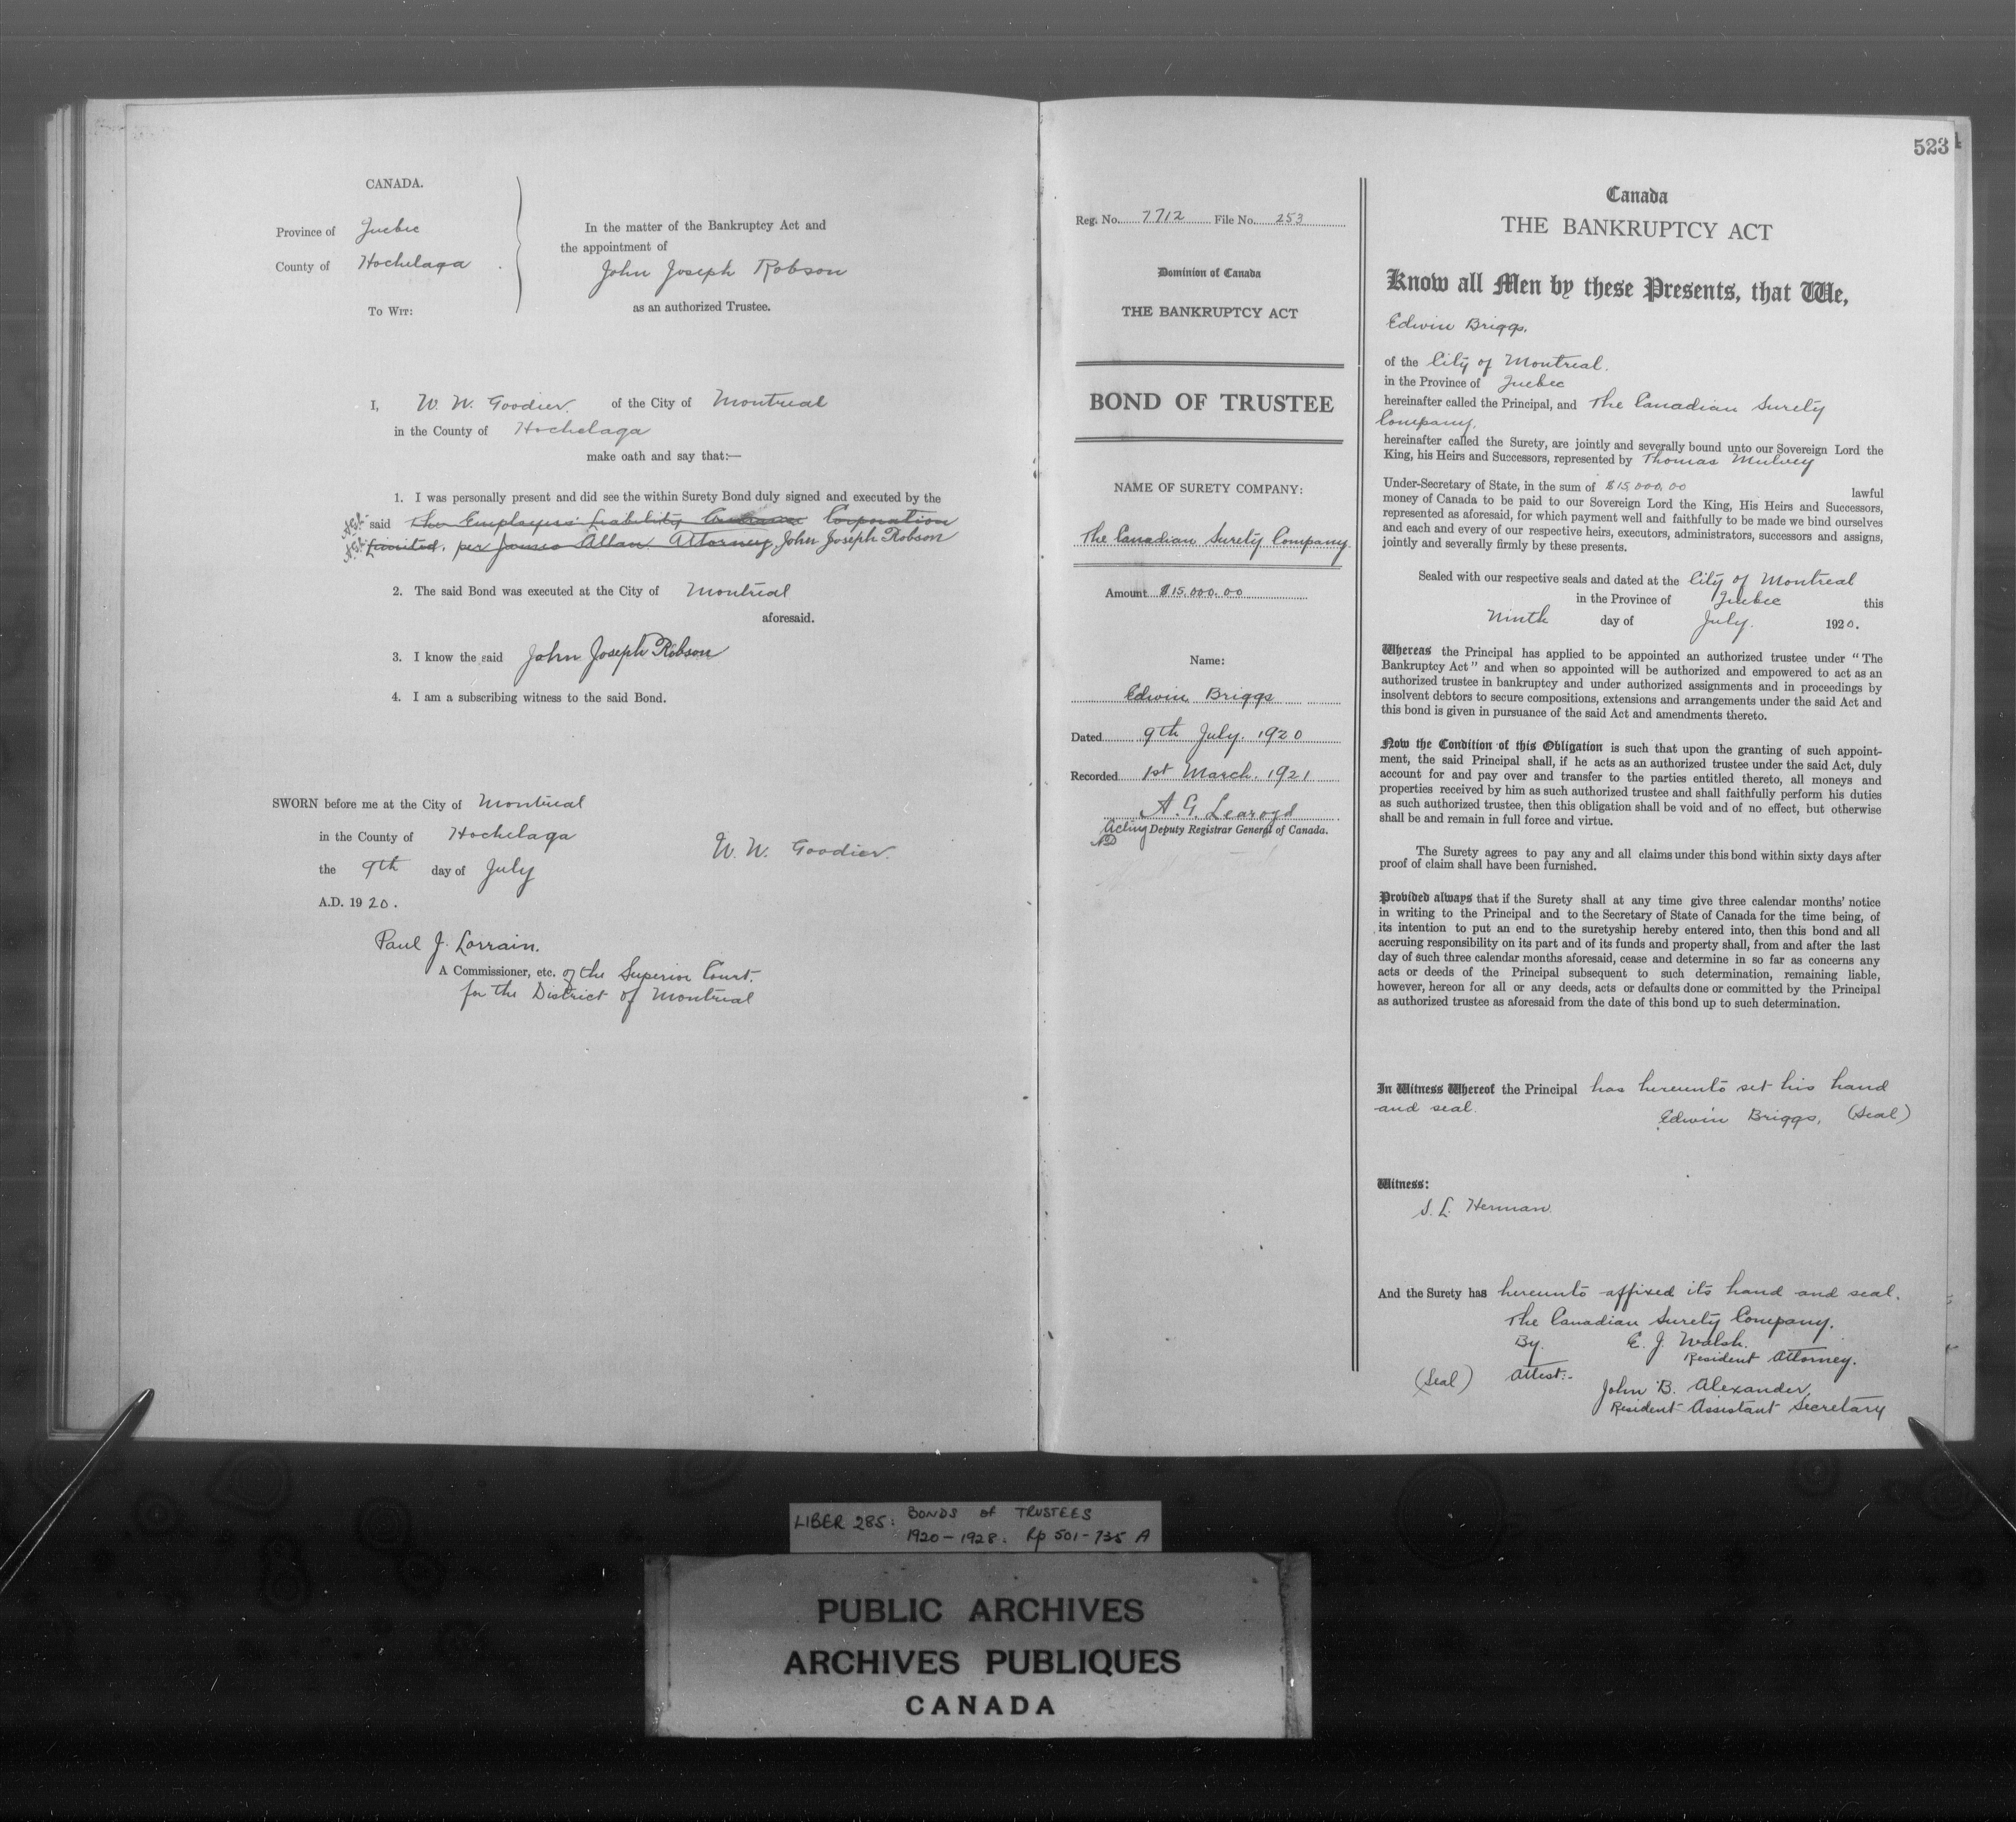 CANADA.
Province of Quebec
County of Hochelaga
To Wit:
In the matter of the Bankruptcy Act and
the appointment of
John Joseph Robson
as an authorized Trustee.
I, W. W. Goodier. of the City of Montreal
in the County of Hochelaga
make oath and say that:—
1. I was personally present and did see the within Surety Bond duly signed and executed by the
said The Employers' Liability Assurance Corporation
Limited. per James Allan Attorney, John Joseph Robson
2. The said Bond was executed at the City of Montreal
aforesaid.
3. I know the said John Joseph Robson
4. I am a subscribing witness to the said Bond.
SWORN before me at the City of Montreal
in the County of Hochelaga
the 9th day of July
A.D. 1920.
W. W. Goodier.
Paul J. Lorrain.
A Commissioner, etc. of the Superior Court.
for the District of Montreal
Reg. No. 7712 File No. 253
Dominion of Canada
THE BANKRUPTCY ACT
BOND OF TRUSTEE
NAME OF SURETY COMPANY:
The Canadian Surety Company.
Amount $15,000.00
Name:
Edwin Briggs
Dated 9th July. 1920
Recorded 1st March. 1921
A. G. Learoyd
Acting Deputy Registrar General of Canada.
523
Canada
THE BANKRUPTCY ACT
Know all Men by these Presents, that We,
Edwin Briggs.
of the City of Montreal.
in the Province of Quebec
hereinafter called the Principal, and The Canadian Surety
Company.
hereinafter called the Surety, are jointly and severally bound unto our Sovereign Lord the
King, his Heirs and Successors, represented by Thomas Mulvey
Under-Secretary of State, in the sum of $15,000.00 lawful
money of Canada to be paid to our Sovereign Lord the King, His Heirs and Successors,
represented as aforesaid, for which payment well and faithfully to be made we bind ourselves
and each and every of our respective heirs, executors, administrators, successors and assigns,
jointly and severally firmly by these presents.
Sealed with our respective seals and dated at the City of Montreal
in the Province of Quebec this
Ninth day of July. 1920.
Whereas the Principal has applied to be appointed an authorized trustee under "The
Bankruptcy Act" and when so appointed will be authorized and empowered to act as an
authorized trustee in bankruptcy and under authorized assignments and in proceedings by
insolvent debtors to secure compositions, extensions and arrangements under the said Act and
this bond is given in pursuance of the said Act and amendments thereto.
Now the Condition of this Obligation is such that upon the granting of such appoint-
ment, the said Principal shall, if he acts as an authorized trustee under the said Act, duly
account for and pay over and transfer to the parties entitled thereto, all moneys and
properties received by him as such authorized trustee and shall faithfully perform his duties
as such authorized trustee, then this obligation shall be void and of no effect, but otherwise
shall be and remain in full force and virtue.
The Surety agrees to pay any and all claims under this bond within sixty days after
proof of claim shall have been furnished.
Provided always that if the Surety shall at any time give three calendar months' notice
in writing to the Principal and to the Secretary of State of Canada for the time being, of
its intention to put an end to the suretyship hereby entered into, then this bond and all
accruing responsibility on its part and of its funds and property shall, from and after the last
day of such three calendar months aforesaid, cease and determine in so far as concerns any
acts or deeds of the Principal subsequent to such determination, remaining liable,
however, hereon for all or any deeds, acts or defaults done or committed by the Principal
as authorized trustee as aforesaid from the date of this bond up to such determination.
In Witness Whereof the Principal has hereunto set his hand
and seal.
Edwin Briggs, (Seal)
Witness:
S. L. Herman.
And the Surety has hereunto affixed its hand and seal.
The Canadian Surety Company.
By. E. J. Walsh.
Resident Attorney.
(Seal) Attest:-
John B. Alexander,
Resident Assistant Secretary
LIBER 285: BONDS of TRUSTEES
1920-1928: pp 501-735 A
PUBLIC ARCHIVES
ARCHIVES PUBLIQUES
CANADA